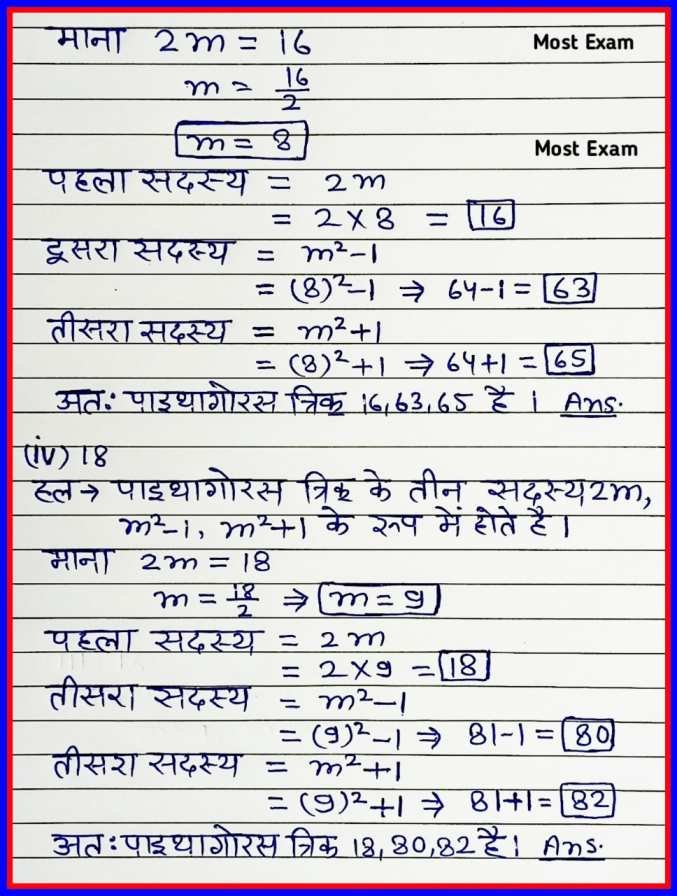 माना 2m = 16 Most Exam
m = 16/2
m = 8
Most Exam
पहला सदस्य = 2m
= 2 × 8 = 16
दूसरा सदस्य = m²-1
= (8)²-1 ⇒ 64-1 = 63
तीसरा सदस्य = m²+1
= (8)²+1 ⇒ 64+1 = 65
अतः पाइथागोरस त्रिक 16,63,65 है । Ans.
(iv) 18
हल → पाइथागोरस त्रिक के तीन सदस्य 2m,
m²-1, m²+1 के रूप में होते है ।
माना 2m = 18
m = 18/2 ⇒ m = 9
पहला सदस्य = 2m
= 2×9 = 18
तीसरा सदस्य = m²-1
= (9)²-1 ⇒ 81-1 = 80
तीसरा सदस्य = m²+1
= (9)²+1 ⇒ 81+1 = 82
अतः पाइथागोरस त्रिक 18,80,82 है । Ans.